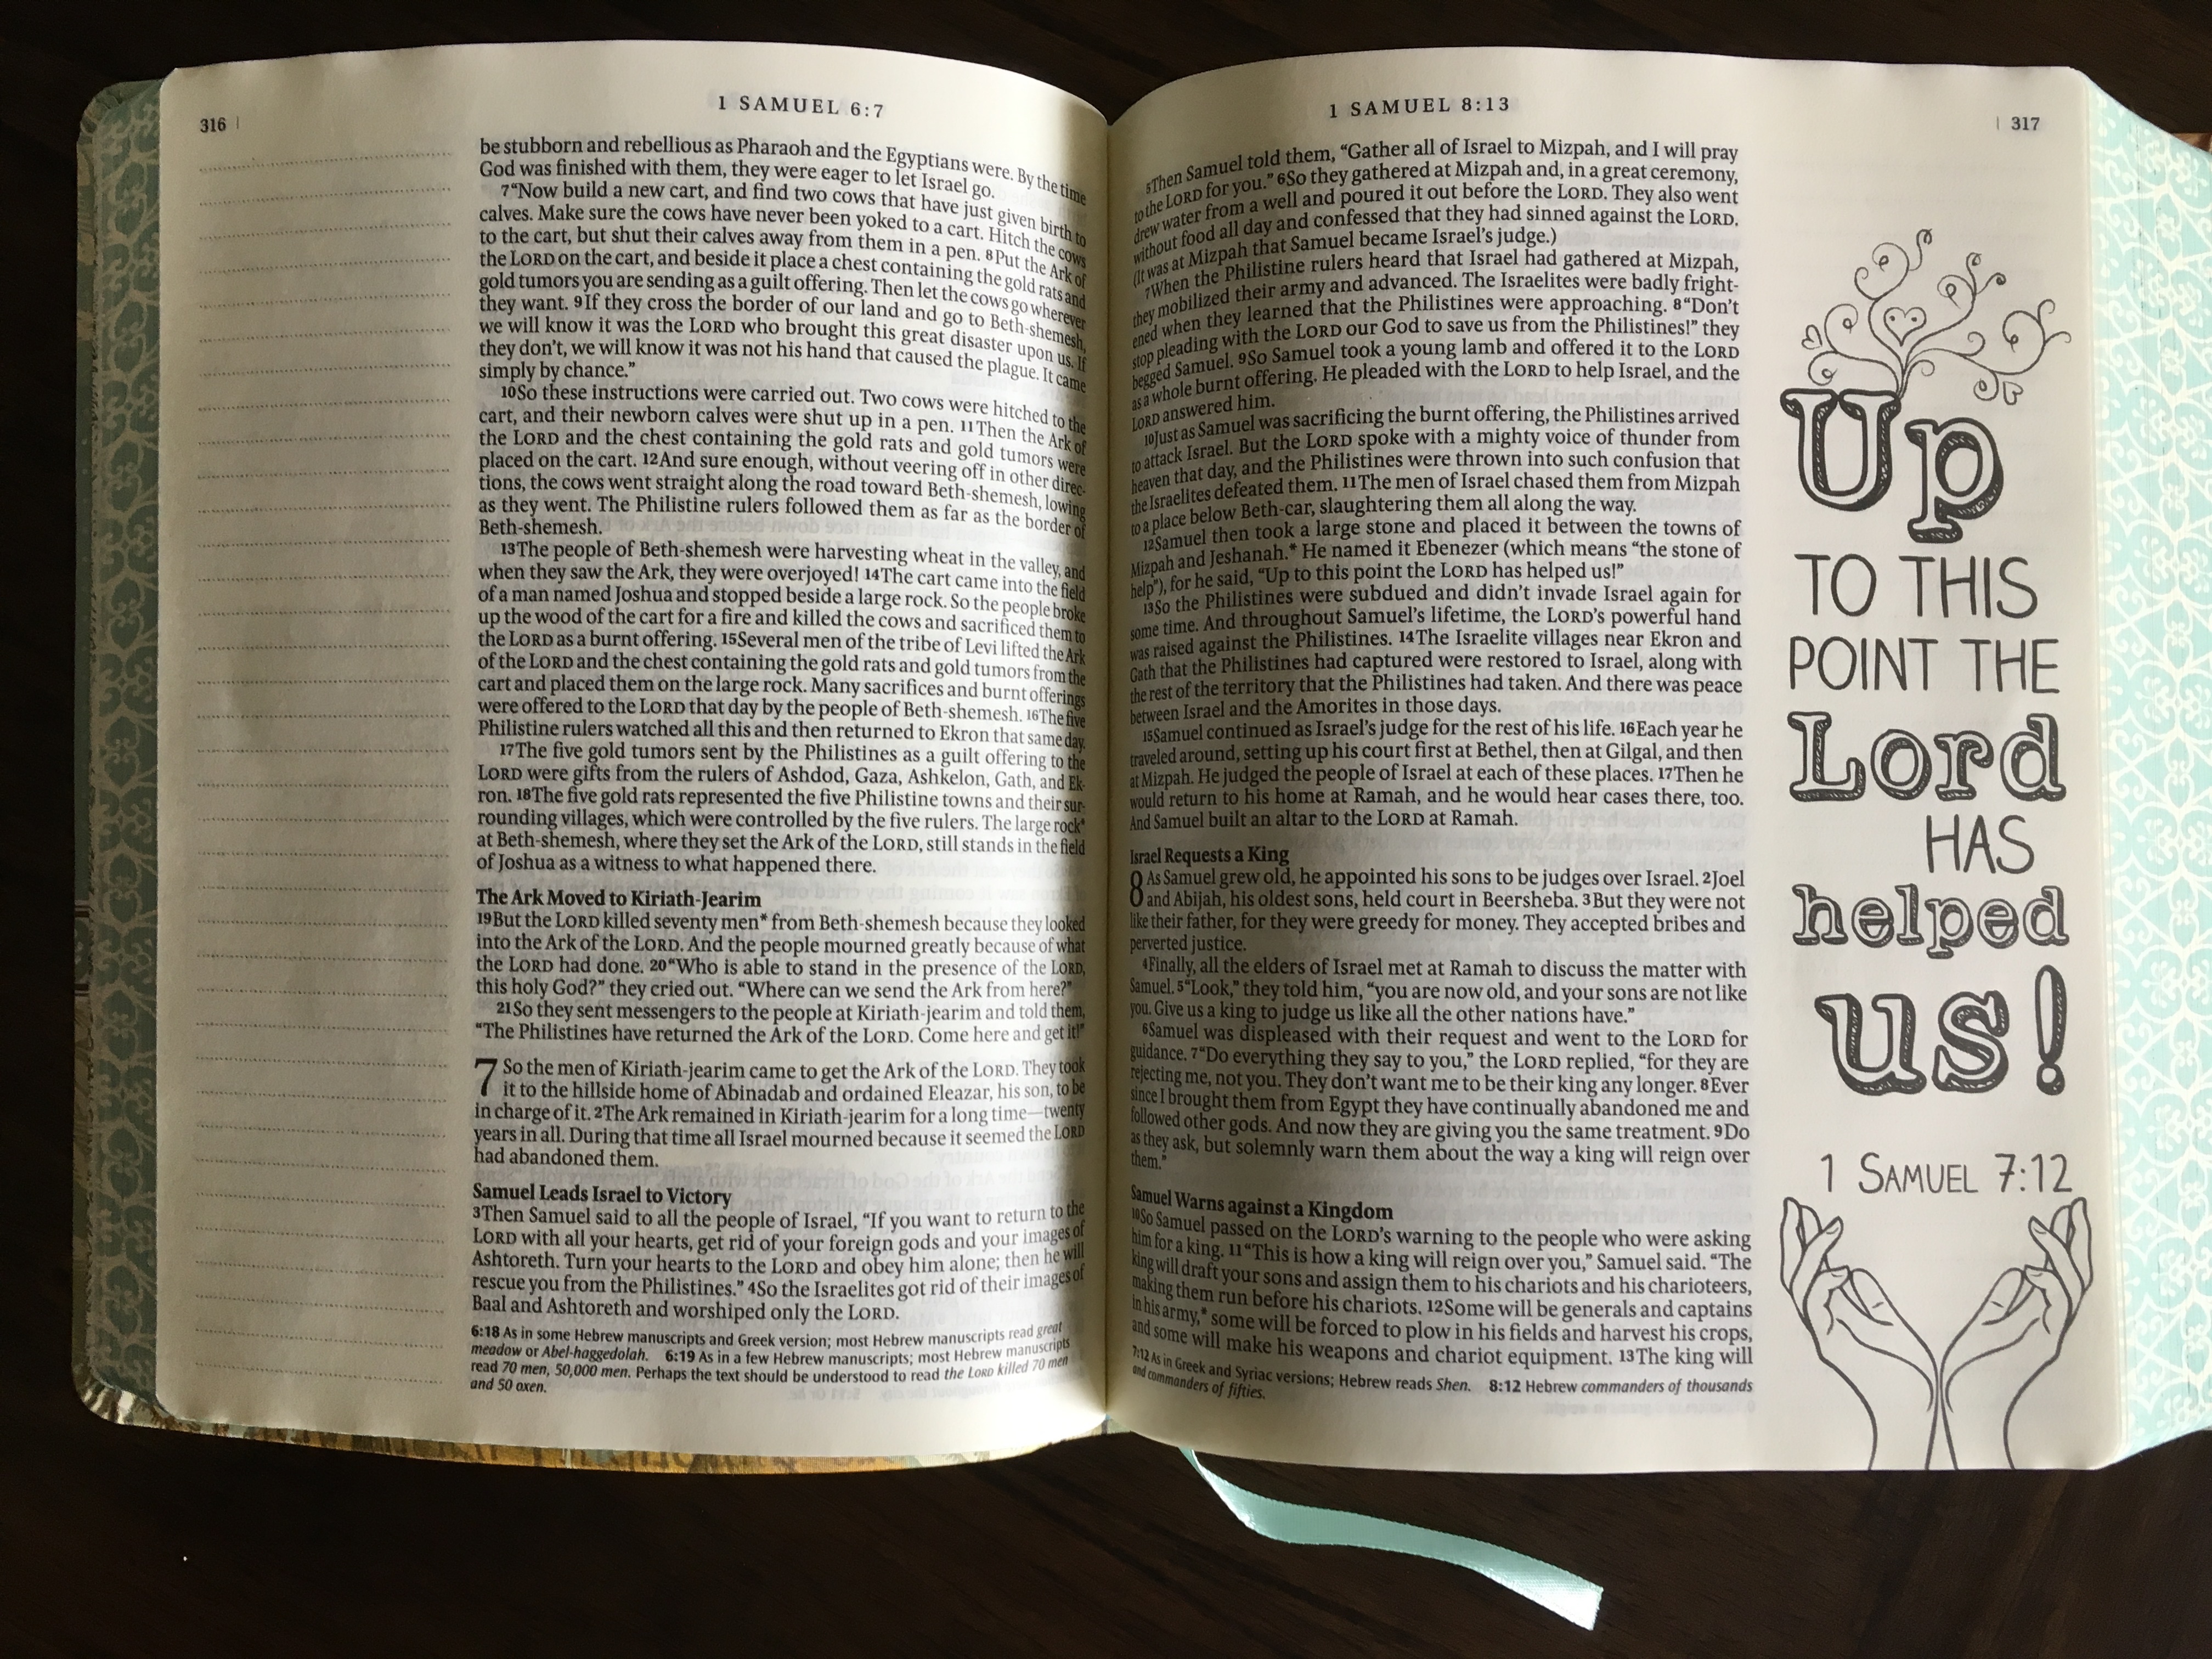 316
1 SAMUEL 6:7
be stubborn and rebellious as Pharaoh and the Egyptians were. By the time
God was finished with them, they were eager to let Israel go.
7“Now build a new cart, and find two cows that have just given birth to
calves. Make sure the cows have never been yoked to a cart. Hitch the cows
to the cart, but shut their calves away from them in a pen. 8Put the Ark of
the LORD on the cart, and beside it place a chest containing the gold rats and
gold tumors you are sending as a guilt offering. Then let the cows go wherever
they want. 9If they cross the border of our land and go to Beth-shemesh,
we will know it was the LORD who brought this great disaster upon us. If
they don’t, we will know it was not his hand that caused the plague. It came
simply by chance.”
10So these instructions were carried out. Two cows were hitched to the
cart, and their newborn calves were shut up in a pen. 11Then the Ark of
the LORD and the chest containing the gold rats and gold tumors were
placed on the cart. 12And sure enough, without veering off in other direc-
tions, the cows went straight along the road toward Beth-shemesh, lowing
as they went. The Philistine rulers followed them as far as the border of
Beth-shemesh.
13The people of Beth-shemesh were harvesting wheat in the valley, and
when they saw the Ark, they were overjoyed! 14The cart came into the field
of a man named Joshua and stopped beside a large rock. So the people broke
up the wood of the cart for a fire and killed the cows and sacrificed them to
the LORD as a burnt offering. 15Several men of the tribe of Levi lifted the Ark
of the LORD and the chest containing the gold rats and gold tumors from the
cart and placed them on the large rock. Many sacrifices and burnt offerings
were offered to the LORD that day by the people of Beth-shemesh. 16The five
Philistine rulers watched all this and then returned to Ekron that same day.
17The five gold tumors sent by the Philistines as a guilt offering to the
LORD were gifts from the rulers of Ashdod, Gaza, Ashkelon, Gath, and Ek-
ron. 18The five gold rats represented the five Philistine towns and their sur-
rounding villages, which were controlled by the five rulers. The large rock*
at Beth-shemesh, where they set the Ark of the LORD, still stands in the field
of Joshua as a witness to what happened there.
The Ark Moved to Kiriath-Jearim
19But the LORD killed seventy men* from Beth-shemesh because they looked
into the Ark of the LORD. And the people mourned greatly because of what
the LORD had done. 20“Who is able to stand in the presence of the LORD,
this holy God?” they cried out. “Where can we send the Ark from here?”
21So they sent messengers to the people at Kiriath-jearim and told them,
“The Philistines have returned the Ark of the LORD. Come here and get it!”
7 So the men of Kiriath-jearim came to get the Ark of the LORD. They took
it to the hillside home of Abinadab and ordained Eleazar, his son, to be
in charge of it. 2The Ark remained in Kiriath-jearim for a long time—twenty
years in all. During that time all Israel mourned because it seemed the LORD
had abandoned them.
Samuel Leads Israel to Victory
3Then Samuel said to all the people of Israel, “If you want to return to the
LORD with all your hearts, get rid of your foreign gods and your images of
Ashtoreth. Turn your hearts to the LORD and obey him alone; then he will
rescue you from the Philistines.” 4So the Israelites got rid of their images of
Baal and Ashtoreth and worshiped only the LORD.
6:18 As in some Hebrew manuscripts and Greek version; most Hebrew manuscripts read great
meadow or Abel-haggedolah. 6:19 As in a few Hebrew manuscripts; most Hebrew manuscripts
read 70 men, 50,000 men. Perhaps the text should be understood to read the LORD killed 70 men
and 50 oxen.
1 SAMUEL 8:13
317
5Then Samuel told them, “Gather all of Israel to Mizpah, and I will pray
to the LORD for you.” 6So they gathered at Mizpah and, in a great ceremony,
drew water from a well and poured it out before the LORD. They also went
without food all day and confessed that they had sinned against the LORD.
(It was at Mizpah that Samuel became Israel’s judge.)
7When the Philistine rulers heard that Israel had gathered at Mizpah,
they mobilized their army and advanced. The Israelites were badly fright-
ened when they learned that the Philistines were approaching. 8“Don’t
stop pleading with the LORD our God to save us from the Philistines!” they
begged Samuel. 9So Samuel took a young lamb and offered it to the LORD
as a whole burnt offering. He pleaded with the LORD to help Israel, and the
LORD answered him.
10Just as Samuel was sacrificing the burnt offering, the Philistines arrived
to attack Israel. But the LORD spoke with a mighty voice of thunder from
heaven that day, and the Philistines were thrown into such confusion that
the Israelites defeated them. 11The men of Israel chased them from Mizpah
to a place below Beth-car, slaughtering them all along the way.
12Samuel then took a large stone and placed it between the towns of
Mizpah and Jeshanah.* He named it Ebenezer (which means “the stone of
help”), for he said, “Up to this point the LORD has helped us!”
13So the Philistines were subdued and didn’t invade Israel again for
some time. And throughout Samuel’s lifetime, the LORD’s powerful hand
was raised against the Philistines. 14The Israelite villages near Ekron and
Gath that the Philistines had captured were restored to Israel, along with
the rest of the territory that the Philistines had taken. And there was peace
between Israel and the Amorites in those days.
15Samuel continued as Israel’s judge for the rest of his life. 16Each year he
traveled around, setting up his court first at Bethel, then at Gilgal, and then
at Mizpah. He judged the people of Israel at each of these places. 17Then he
would return to his home at Ramah, and he would hear cases there, too.
And Samuel built an altar to the LORD at Ramah.
Israel Requests a King
8 As Samuel grew old, he appointed his sons to be judges over Israel. 2Joel
and Abijah, his oldest sons, held court in Beersheba. 3But they were not
like their father, for they were greedy for money. They accepted bribes and
perverted justice.
4Finally, all the elders of Israel met at Ramah to discuss the matter with
Samuel. 5“Look,” they told him, “you are now old, and your sons are not like
you. Give us a king to judge us like all the other nations have.”
6Samuel was displeased with their request and went to the LORD for
guidance. 7“Do everything they say to you,” the LORD replied, “for they are
rejecting me, not you. They don’t want me to be their king any longer. 8Ever
since I brought them from Egypt they have continually abandoned me and
followed other gods. And now they are giving you the same treatment. 9Do
as they ask, but solemnly warn them about the way a king will reign over
them.”
Samuel Warns against a Kingdom
10So Samuel passed on the LORD’s warning to the people who were asking
him for a king. 11“This is how a king will reign over you,” Samuel said. “The
king will draft your sons and assign them to his chariots and his charioteers,
making them run before his chariots. 12Some will be generals and captains
in his army,* some will be forced to plow in his fields and harvest his crops,
and some will make his weapons and chariot equipment. 13The king will
7:12 As in Greek and Syriac versions; Hebrew reads Shen. 8:12 Hebrew commanders of thousands
and commanders of fifties.
Up
TO THIS
POINT THE
Lord
HAS
helped
us!
1 SAMUEL 7:12